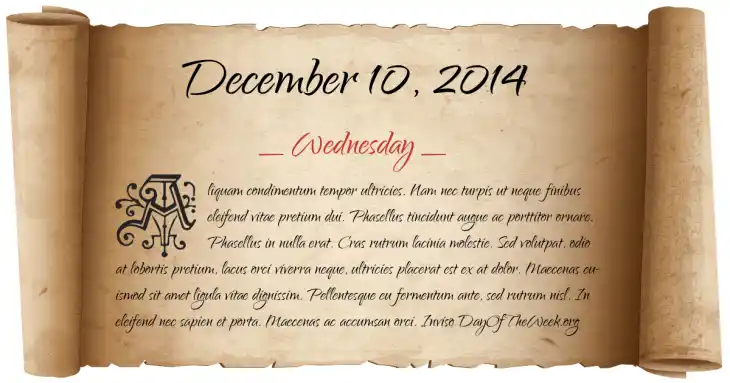 December 10, 2014
— Wednesday —
Aliquam condimentum tempor ultricies. Nam nec turpis ut neque finibus
eleifend vitae pretium dui. Phasellus tincidunt augue ac porttitor ornare.
Phasellus in nulla erat. Cras rutrum lacinia molestie. Sed volutpat, odio
at lobortis pretium, lacus orci viverra neque, ultricies placerat est ex at dolor. Maecenas eu-
ismod sit amet ligula vitae dignissim. Pellentesque eu fermentum ante, sed rutrum nisl. In
eleifend nec sapien et porta. Maecenas ac accumsan orci. Inviso DayOfTheWeek.org